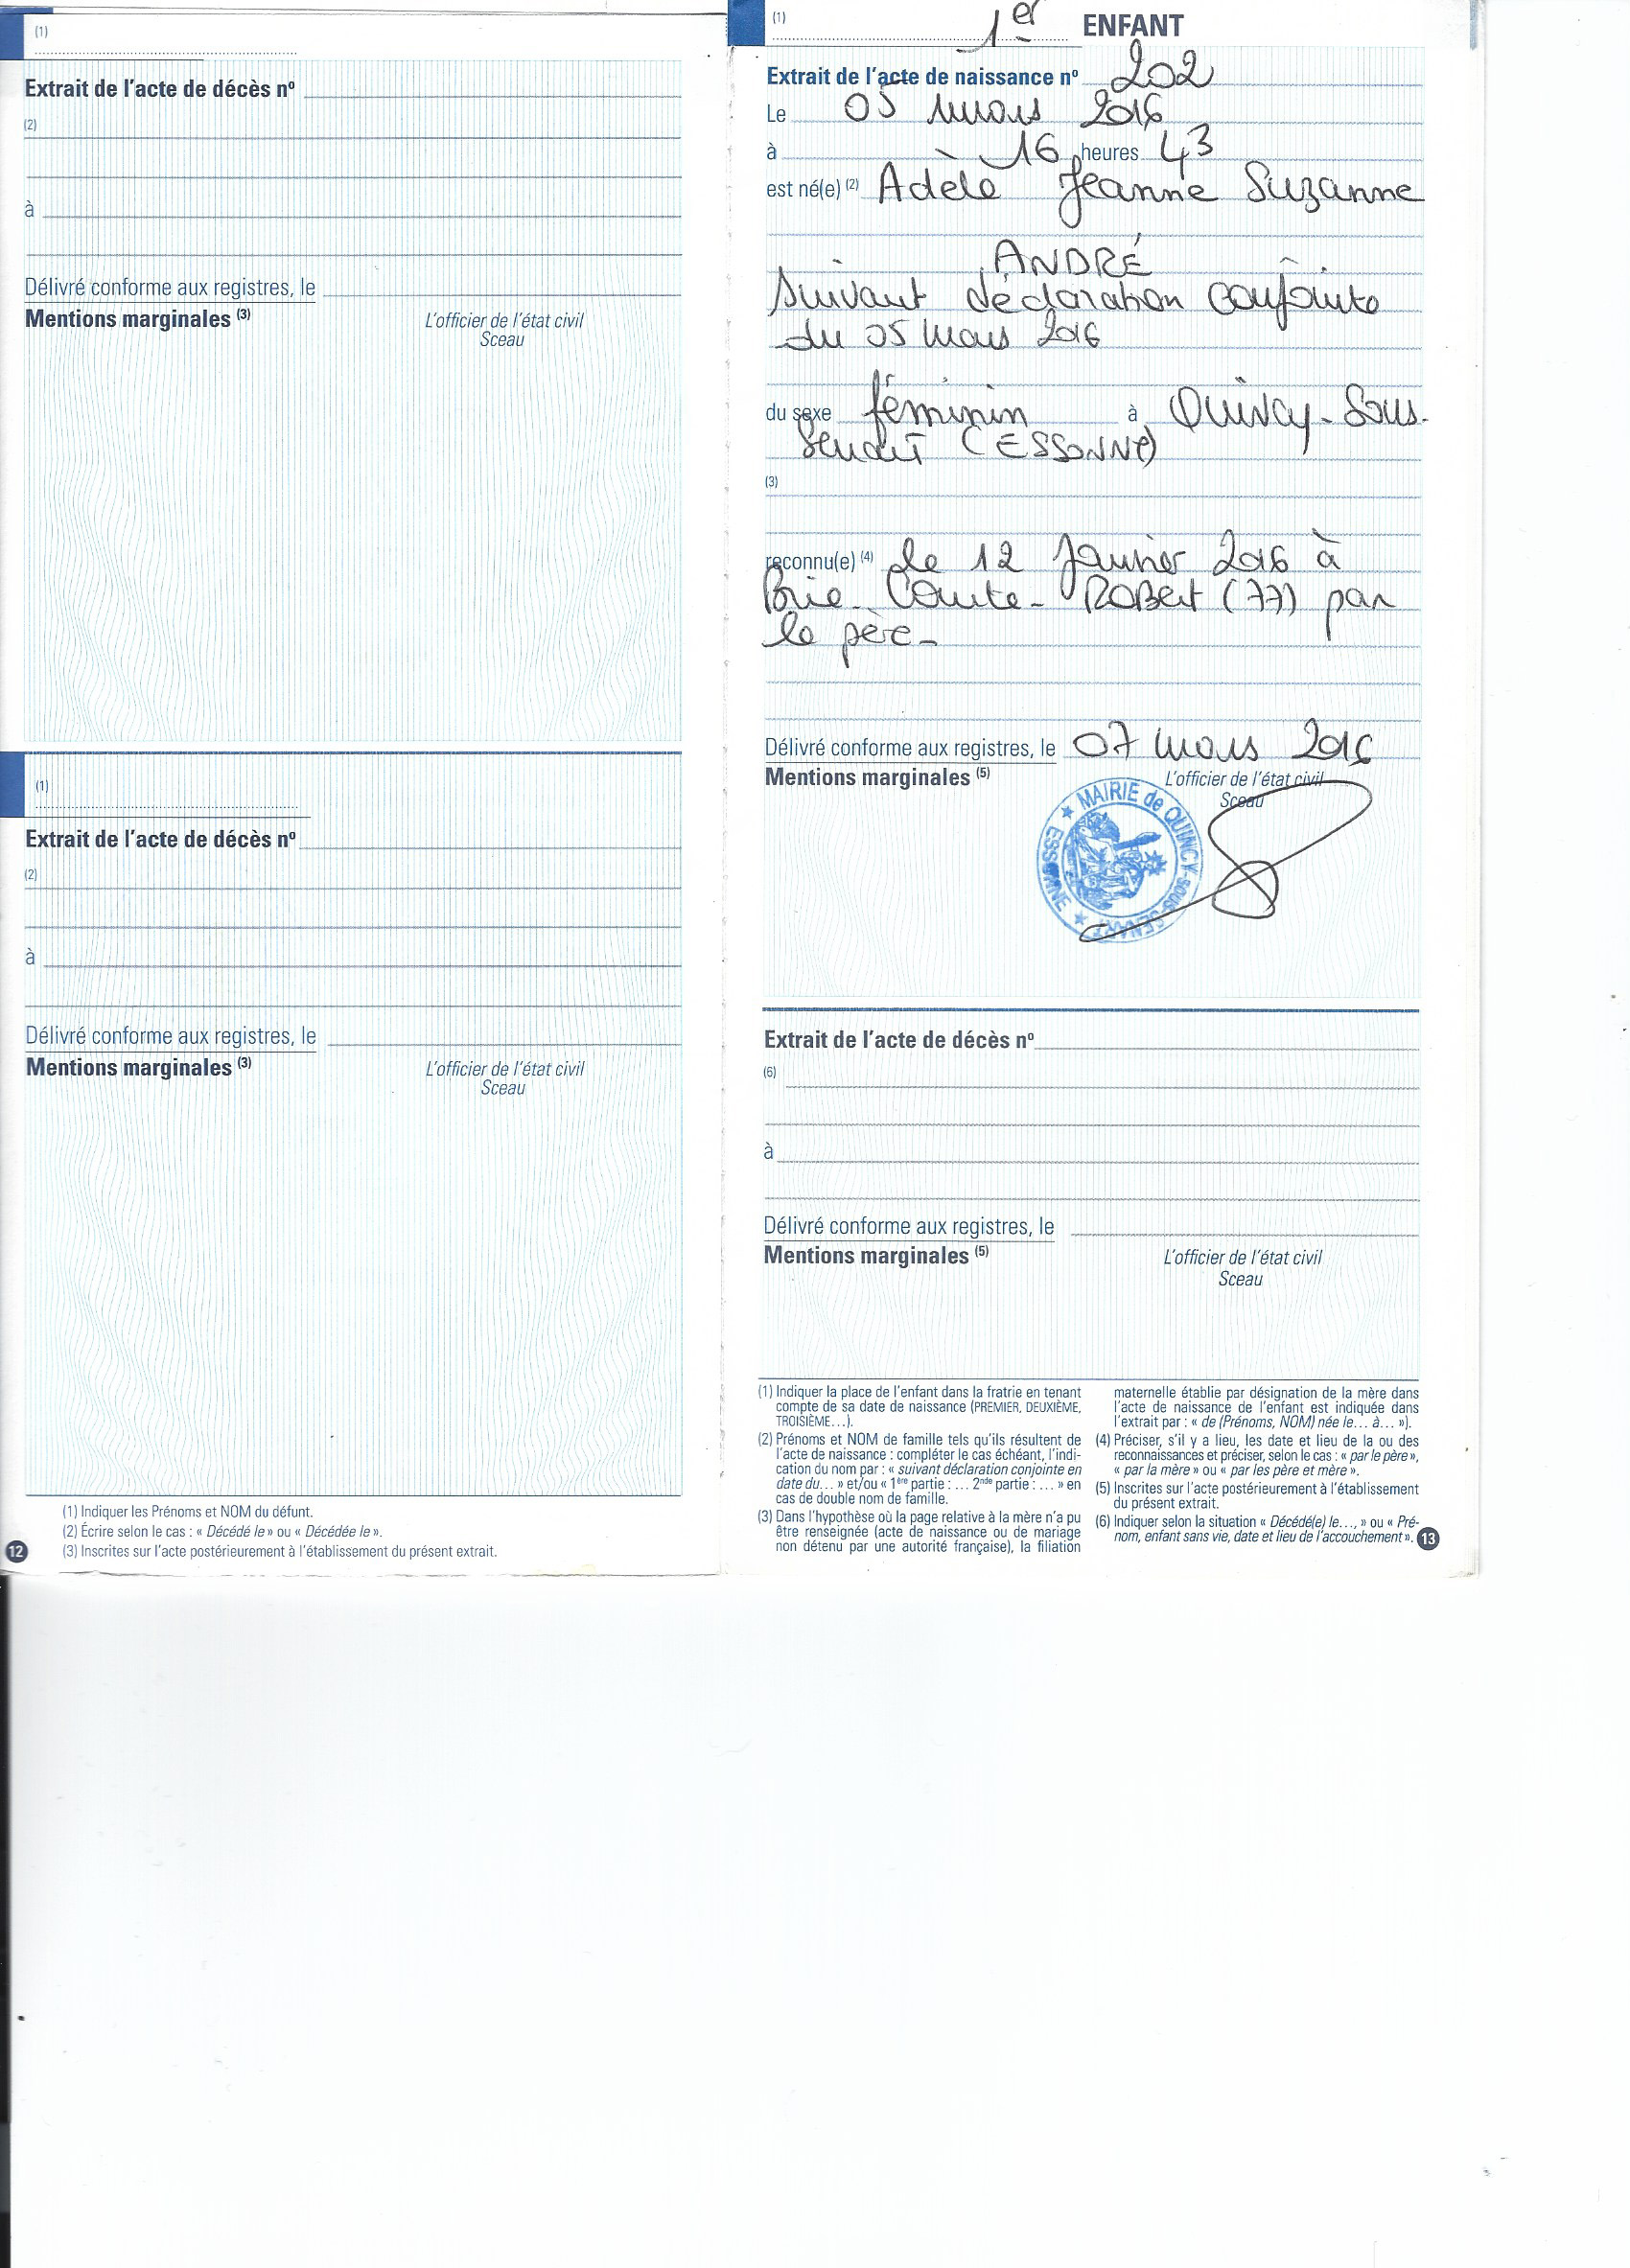 (1)
Extrait de l'acte de décès nº
(2)
à
Délivré conforme aux registres, le
Mentions marginales (3)
L'officier de l'état civil
Sceau
(1)
Extrait de l'acte de décès nº
(2)
à
Délivré conforme aux registres, le
Mentions marginales (3)
L'officier de l'état civil
Sceau
(1) Indiquer les Prénoms et NOM du défunt.
(2) Écrire selon le cas : « Décédé le » ou « Décédée le ».
(3) Inscrites sur l'acte postérieurement à l'établissement du présent extrait.
12
(1) 1er ENFANT
Extrait de l'acte de naissance nº 202
Le 05 mars 2016
à 16 heures 43
est né(e) (2) Adèle Jeanne Suzanne
ANDRÉ
suivant déclaration conjointe
du 05 mars 2016
du sexe féminin à Quincy-Sous-
Senart (ESSONNE)
(3)
reconnu(e) (4) le 12 Janvier 2016 à
Brie-Comte-Robert (77) par
le père-
Délivré conforme aux registres, le 07 mars 2016
Mentions marginales (5)
L'officier de l'état civil
Sceau
MAIRIE de QUINCY-SOUS-SENART
ESSONNE
Extrait de l'acte de décès nº
(6)
à
Délivré conforme aux registres, le
Mentions marginales (5)
L'officier de l'état civil
Sceau
(1) Indiquer la place de l'enfant dans la fratrie en tenant
compte de sa date de naissance (PREMIER, DEUXIÈME,
TROISIÈME…).
(2) Prénoms et NOM de famille tels qu'ils résultent de
l'acte de naissance : compléter le cas échéant, l'indi-
cation du nom par : « suivant déclaration conjointe en
date du… » et/ou « 1ère partie : … 2nde partie : … » en
cas de double nom de famille.
(3) Dans l'hypothèse où la page relative à la mère n'a pu
être renseignée (acte de naissance ou de mariage
non détenu par une autorité française), la filiation
maternelle établie par désignation de la mère dans
l'acte de naissance de l'enfant est indiquée dans
l'extrait par : « de (Prénoms, NOM) née le… à… »).
(4) Préciser, s'il y a lieu, les date et lieu de la ou des
reconnaissances et préciser, selon le cas : « par le père »,
« par la mère » ou « par les père et mère ».
(5) Inscrites sur l'acte postérieurement à l'établissement
du présent extrait.
(6) Indiquer selon la situation « Décédé(e) le…, » ou « Pré-
nom, enfant sans vie, date et lieu de l'accouchement ».
13